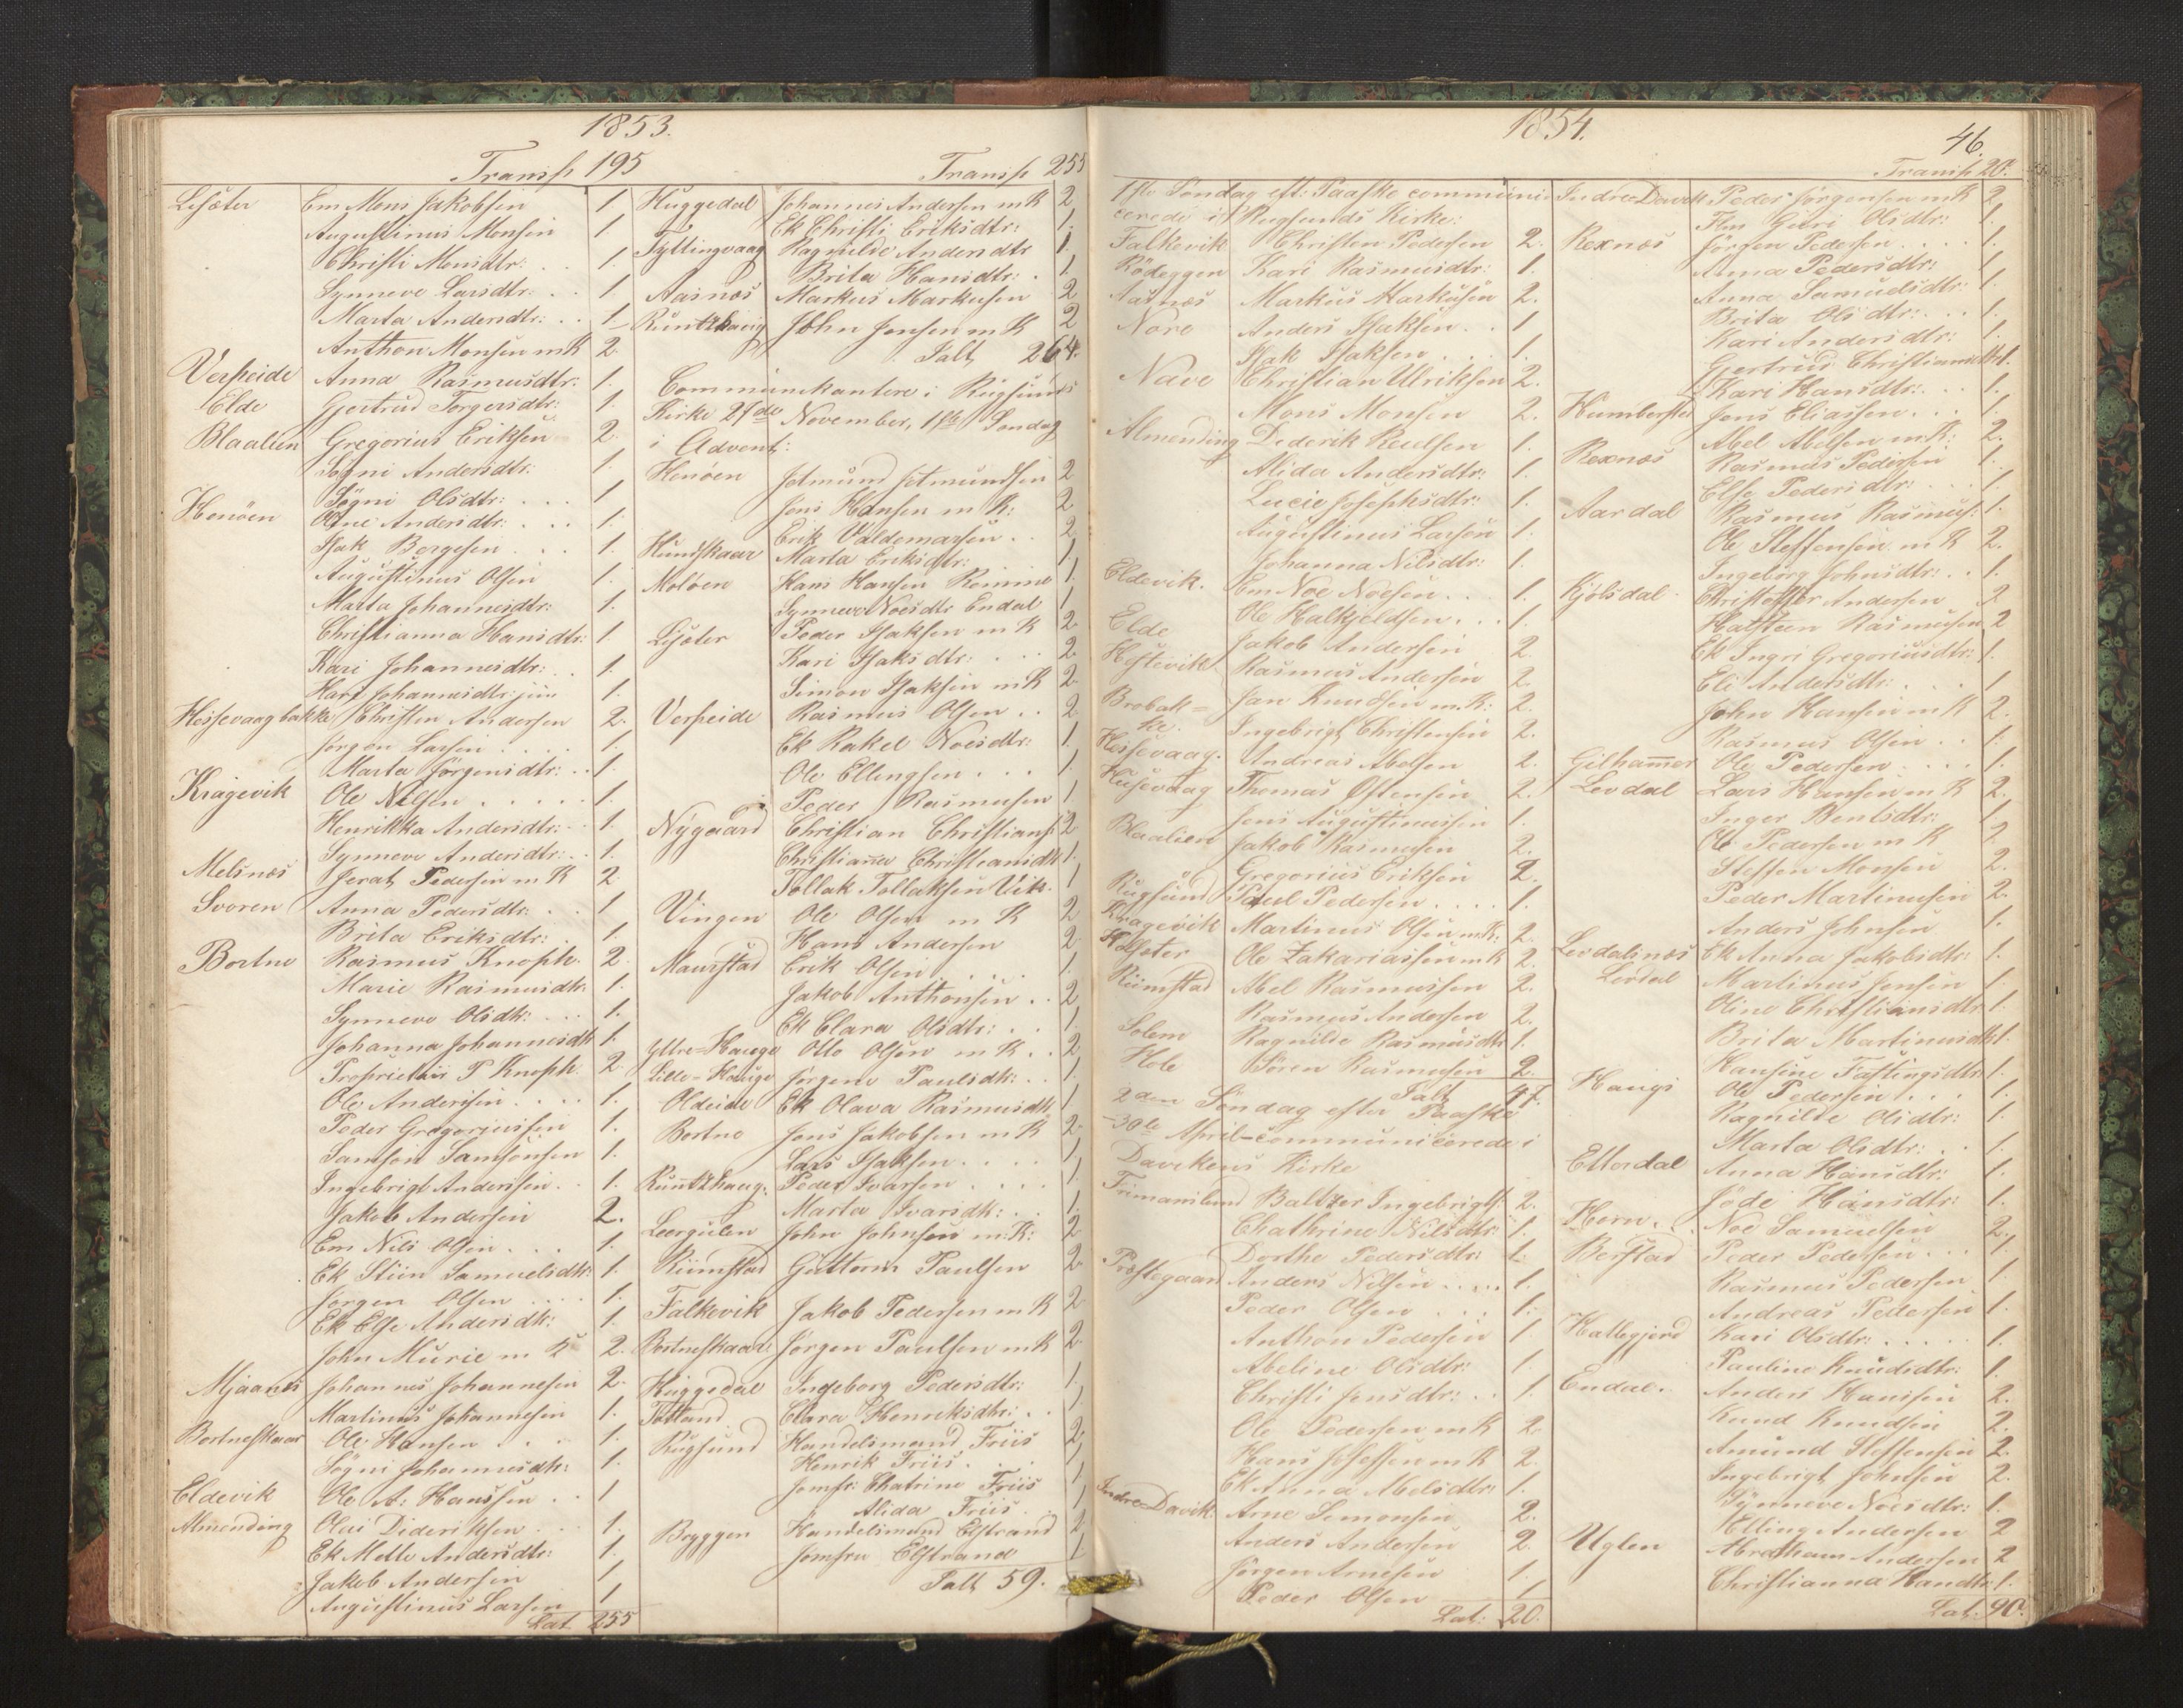 1853.
Transp 195
Lesæter Em Mons Jakobsen 1
Augustinus Monsen 1
Christi Monsdtr: . . 1.
Synneve Larsdtr: . . 1
Marta Andersdtr: . . 1
Anthon Monsen m K 2.
Verpeide Anna Rasmusdtr. 1.
Elde Gjertrud Torgersdtr: 1.
Blaalien Gregorius Eriksen 2.
Søgni Andersdtr: 1.
Søgni Olsdtr: . . . 1
Henöen Oline Andersdtr: . . . 1.
Isak Børgesen . . . 1.
Augustinus Olsen 1.
Marta Johannesdtr: 1.
Christianna Hansdtr: 1.
Kari Johannesdtr: . . 1.
Kari Johannesdtr: jün 1.
Hessevaagbakke Christen Andersen 2.
Jørgen Larsen . . . . 1.
Marta Jörgensdtr: . . 1.
Kragevik Ole Nilsen . . . . . 1.
Henrikka Andersdtr: . . 1.
Synneve Andersdtr: . . 1.
Melsnæs Jerat Pedersen m K 2.
Svoren Anna Pedersdtr: . . 1
Brita Eriksdtr: . 1.
Bortne Rasmus Knoph. 2.
Marie Rasmusdtr 1.
Synneve Olsdtr: . . . 1.
Johanna Johannesdtr 1.
Proprietair P Knoph. 2.
Ole Andersen . . . . 1.
Peder Gregoriussen 1.
Samson Samsonsen 1.
Ingebrigt Andersen . . 1.
Jakob Andersen 2.
Em Nils Olsen . . . 1.
Ek Stiin Samuelsdtr: 1.
Jørgen Olsen . . . . 1.
Ek Else Andersdtr: 1.
John Murie m K 2.
Mjaanes Johannes Johannesen 2.
Martinus Johannesen 1.
Bortneskaar Ole Hansen . . . 1.
Søgni Johannesdtr: 1.
Eldevik Ole A: Hanssen . . 1
Almending Olai Dideriksen . . . 1.
Ek Mette Andersdtr: 1.
Jakob Andersen 1
Augustinus Larsen 1
Lat. 255
Transp 255
Huggedal Johannes Andersen m K 2
Ek Christi Eriksdtr: 1.
Tyttingvaag Ragnilde Andersdtr 1.
Brita Hansdtr: . 1
Aasnæs Markus Markusen 2
Runtzhaug John Jensen m K 2
Ialt 264.
Communikantere i Rugsunds
Kirke 27de November, 1ste Søndag
i Advent:
Henøen Jetmund Jetmundsen 2
Jens Hansen m K: 2
Erik Valdemarsen . . 2
Hundskaar Marta Eriksdtr: 1
Moløen Hans Hansen Rømine 1
Synneve Noesdtr Endal 1
Lesæter Peder Isaksen m K 2
Kari Isaksdtr: . . . 2
Simon Isaksen m K 2
Verpeide Rasmus Olsen . . 2
Ek Rakel Noesdtr: 1
Ole Ellingsen . . . 1
Peder Rasmusen 1
Nygaard Christian Christians: 2
Christianna Christiansdtr 1.
Tollak Tollaksen Vik. 1
Vingen Ole Olsen m K 2
Hans Andersen 2
Maurstad Erik Olsen . . . . 1.
Jakob Anthonsen . . 2
Ek Clara Olsdtr: . . 1.
Yttre-Hauge Otto Olsen m K . . 2
Lille-Hauge Jørgene Paulsdtr: . . 1.
Oldeide Ek Olava Rasmusdtr 1
Bortne Jens Jakobsen m K 2
Lars Isaksen . . . . 1
Runtzhaug: Peder Ivarsen . . . . 1.
Marta Ivarsdtr: . . 1.
Leergulen John Johnsen m: K: 2
Rimstad Guttorm Paulsen 2
Falkevik Jakob Pedersen m K 2
Bortneskaar Jørgen Paulsen m K 2.
Huggedal Ingeborg Pedersdtr: 1.
Totland Clara Henriksdtr: . . 1
Rugsund Handelsmand Friis 2
Henrik Friis . . . . 1
Jomfr: Chatrine Friis 1
Alida Friis . 1
Bryggen Handelsmand Elstrand 2
Jomfru Elstrand 1
Ialt 59.
1854.
46.
1ste Søndag eft: Paaske communi-
cerede i Rugsunds Kirke:
Falkevik Christen Pedersen 2.
Rödeggen Kari Rasmusdtr: 1.
Aasnæs Markus Markusen 2.
Nore Anders Isaksen . . 1
Isak Isaksen . . . 1.
Nave Christian Ulriksen 2.
Mons Monsen 2.
Almending Dederik Reutsen 1.
Alida Andersdtr: 1.
Lucie Josephsdtr: 1.
Augustinus Larsen 1.
Johanna Nilsdtr: 1.
Eldevik. Em Noe Noesen . . . 1.
Ole Halkjeldsen . . . 1.
Elde Jakob Andersen 2.
Hestevik. Rasmus Andersen 2.
Brobak= Jan Knudsen m. K: 2.
ke. Ingebrigt Christensen 2.
Hessevaag. Andreas Abelsen 2.
Husevaag Thomas Ostensen 2.
Jens Augustinussen 1.
Blaalien Jakob Rasmusen 2.
Gregorius Eriksen 2.
Rugsund Paul Pedersen . . . . 1.
Kragevik Martinus Olsen m: K: 2.
Ole Zakariassen m K 2
Rimstad Abel Rasmussen 2.
Rasmus Andersen 2.
Solem Ragnilde Rasmusdtr 1.
Hole Søren Rasmusen 2.
Ialt 47.
2den Søndag efter Paaske
-30te April-communicerede i
Davikens Kirke
Baltzer Ingebrigts: 2.
Chathrine Nilsdtr 1.
Dorthe Pedersdtr: 1.
Præstegaard Anders Nilsen . . . . . 1.
Peder Olsen . . . 1.
Anthon Pedersen 1
Abeline Olsdtr: 1.
Christi Jensdtr: . . 1.
Ole Pedersen m K 2
Hans Josefsen m K 2.
Ek Anna Abelsdtr: 1.
Indre-Davik. Arne Semonsen 2.
Anders Andersen 2.
Jørgen Arnesen 1.
Peder Olsen 1
Lat: 20.
Transp 20.
Indre Davik Peder Jørgensen m K 2
Flm Guri Olsdtr: 1.
Rexnæs Jørgen Pedersen . . . . 1.
Anna Pedersdtr: 1
Anna Samuelsdtr: 1.
Brita Olsdtr: . . . 1.
Kari Andersdtr: 1.
Gjertrud Christiansdtr 1.
Kari Hansdtr: . . . 1.
Humborstad Jens Eliassen . . . 1.
Abel Abelsen m: K: 2.
Rexnæs Rasmus Pedersen 1.
Else Pedersdtr: . . . 1.
Aardal Rasmus Rasmus: 1.
Ole Steffensen m K 2.
Ingeborg Johnsdtr: . . 1.
Kjölsdal Christoffer Andersen 2
Halsteen Rasmusen 2
Ek Ingri Gregoriusdtr: 1.
Eli Andersdtr: . . . 1
John Hansen m K 2.
Rasmus Olsen . . 1.
Gilhammer Ole Pedersen . . . . 1.
Levdal Lars Hansen m K 2.
Inger Bentsdtr: 1.
Ole Pedersen m K 2.
Steffen Monsen 2.
Peder Martinusen 2.
Anders Johnsen 1.
Levdalsnæs Ek Anna Jakobsdtr: 1.
Levdal Martinus Jensen 1.
Oline Christiansdtr 1.
Brita Martinusdtr 1.
Hansine Fastingsdtr 1.
Haugs Ole Pedersen . . . 1.
Ragnilde Olsdtr: 1.
Marta Olsdtr: . . 1.
Etterdal Anna Hansdtr: 1.
Jöde Hansdtr: 1.
Horn. Noe Samuelsen 2.
Borstad Peder Pedersen . . . 1.
Rasmus Pedersen 1
Andreas Pedersen 1.
Hattegjerd Kari Olsdtr: . . . . 1.
Pauline Knudsdtr: 1.
Endal. Anders Hansen 2.
Knud Knudsen 2.
Amund Steffensen 2.
Ingebrigt Johnsen 2.
Synneve Noesdtr: 1.
Elling Andersen 2
Uglen Abraham Andersen 2
Christianna Handtr: 1.
Lat: 90.